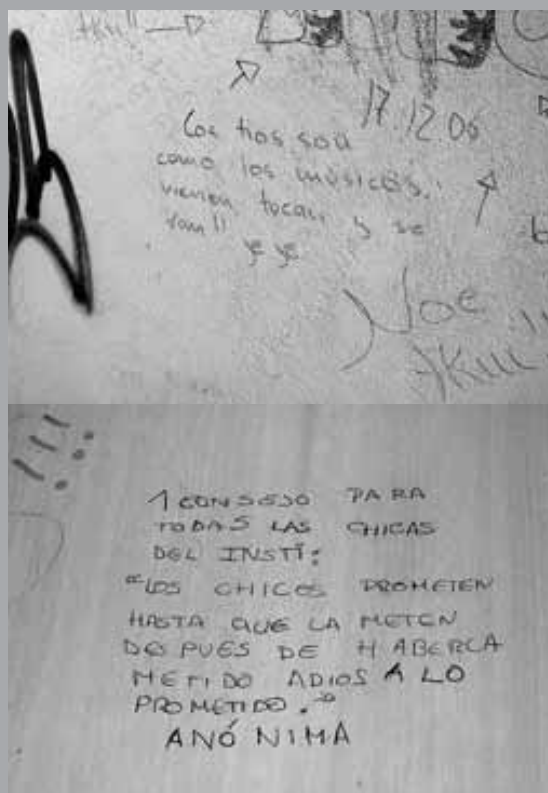 Akill
17.12.06
Los tios son
como los músicos,
vienen tocan y se
van!!
ye ye
Noe
Akill!!!
!!!
1 CONSEJO PARA
TODAS LAS CHICAS
DEL INSTI:
"LOS CHICOS PROMETEN
HASTA QUE LA METEN
DESPUES DE HABERLA
METIDO ADIOS A LO
PROMETIDO."
ANÓNIMA